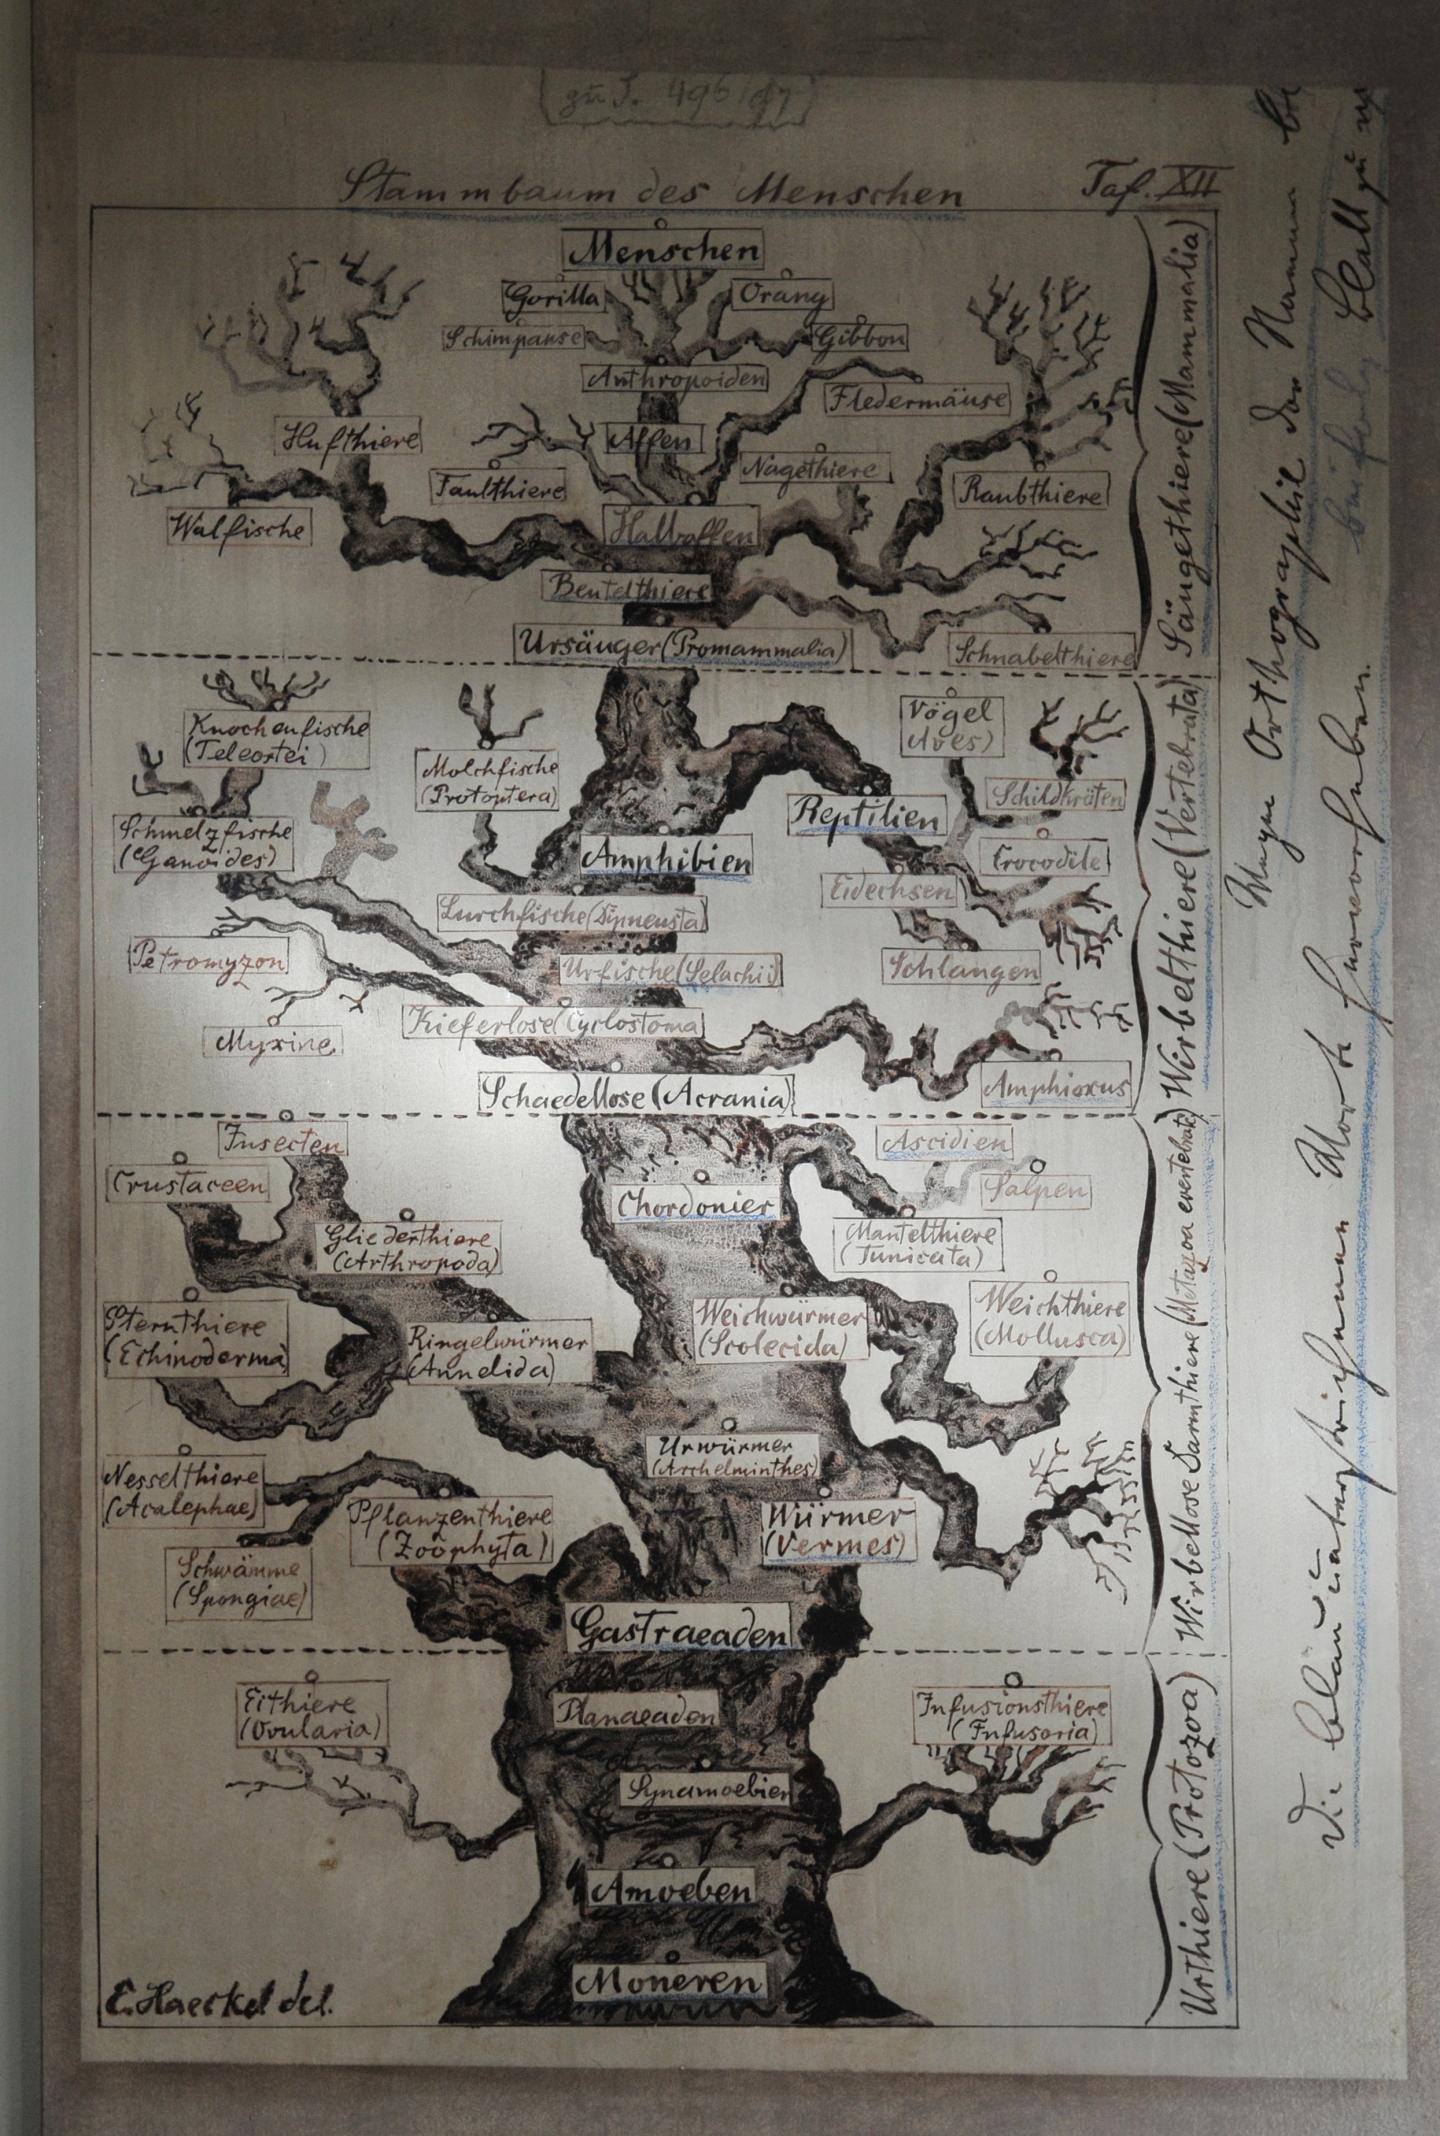 (zu S. 496/97)
Stammbaum des Menschen
Taf. XII
Menschen
Gorilla
Orang
Schimpanse
Gibbon
Anthropoiden
Fledermäuse
Hufthiere
Affen
Nagethiere
Faulthiere
Raubthiere
Walfische
Halbaffen
Beutelthiere
Ursäuger (Promammalia)
Schnabelthiere
Säugethiere (Mammalia)
Knochenfische
(Teleostei)
Molchfische
(Protoptera)
Vögel
(Aves)
Schildkröten
Reptilien
Schmelzfische
(Ganoides)
Amphibien
Crocodile
Eidechsen
Lurchfische (Dipneusta)
Petromyzon
Urfische (Selachii)
Schlangen
Kieferlose (Cyclostoma
Myxine
Amphioxus
Schaedellose (Acrania)
Wirbelthiere (Vertebrata)
Insecten
Ascidien
Crustaceen
Salpen
Chordonier
Gliederthiere
(Arthropoda)
Mantelthiere
(Tunicata)
Sternthiere
(Echinoderma)
Ringelwürmer
(Annelida)
Weichwürmer
(Scolecida)
Weichthiere
(Mollusca)
Urwürmer
(Archelminthes)
Nesselthiere
(Acalephae)
Pflanzenthiere
(Zoophyta)
Würmer
(Vermes)
Schwämme
(Spongiae)
Gastraeaden
Wirbellose Darmthiere (Metazoa evertebrata)
Eithiere
(Ovularia)
Planaeaden
Infusionsthiere
(Infusoria)
Synamoebien
Amoeben
Moneren
Urthiere (Protozoa)
E. Haeckel del.
Wegen Orthographie der Namen
Blatt zu
Die blau unterstrichenen Worte hervorheben.